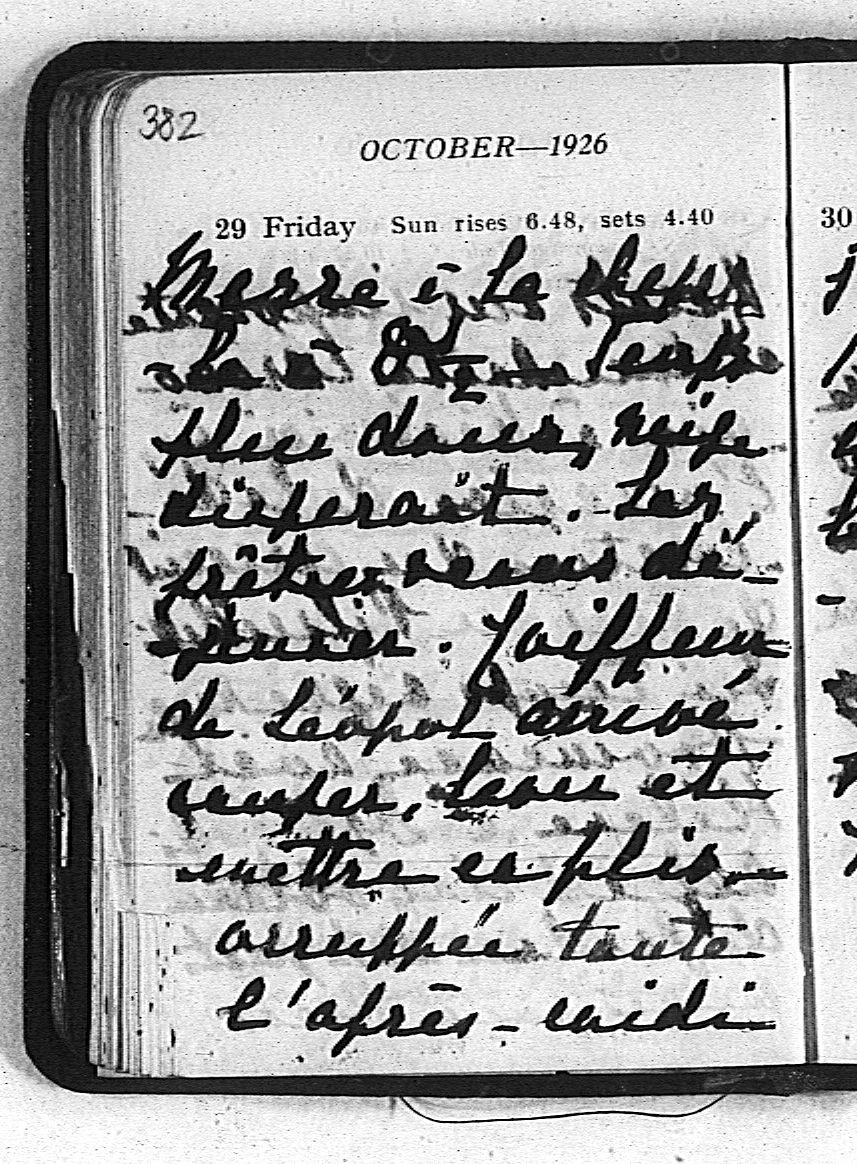 382
OCTOBER—1926
29 Friday Sun rises 6.48, sets 4.40
30
Messe à la chapel
le à 8½ — Temps
plus doux, neige
disparaît. Les
prêtres venus dé-
jeuner. Coiffeur
de Léopol arrivé
couper, laver et
mettre en plis —
occuppée toute
l'après-midi